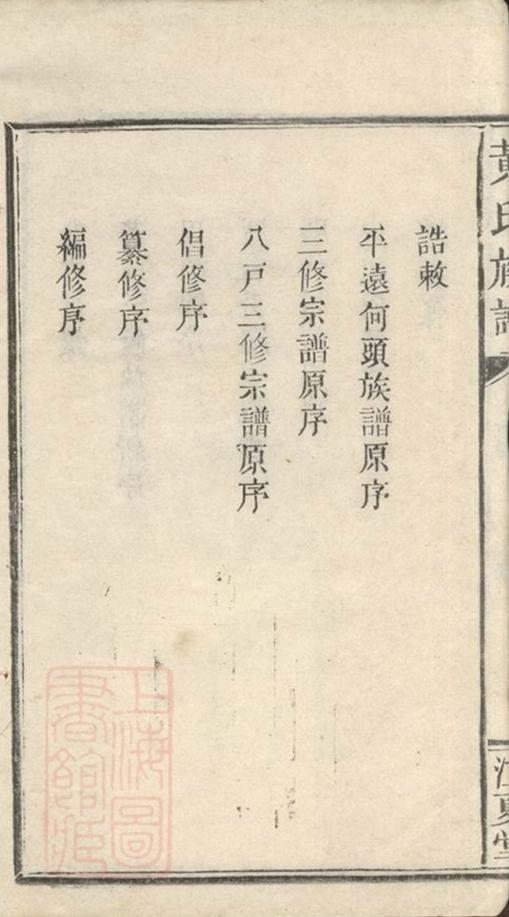 黃氏族譜
江夏堂
誥敕
平遠何頭族譜原序
三修宗譜原序
八戸三修宗譜原序
倡修序
纂修序
編修序
上海圖
書館藏